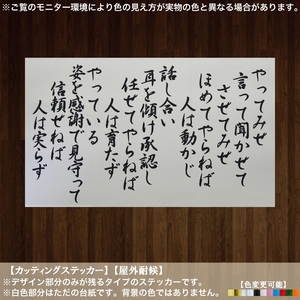 ※ご覧のモニター環境により色の見え方が実物の色と異なる場合があります。
やってみせ
言って聞かせて
させてみせ
ほめてやらねば
人は動かじ
話し合い
耳を傾け承認し
任せてやらねば
人は育たず
やっている
姿を感謝で見守って
信頼せねば
人は実らず
【カッティングステッカー】【屋外耐候】
※デザイン部分のみが残るタイプのステッカーです。
※白色部分はただの台紙です。背景の色ではありません。
【色変更可能】